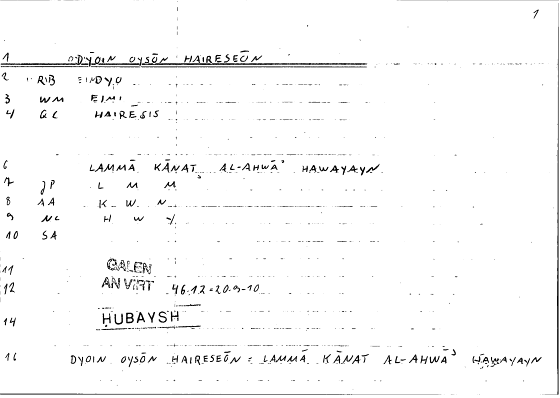 1
1 DYOIN OYSŌN HAIRESEŌN
2 RB EINDYO
3 WM EIMI
4 GC HAIRESIS
6 LAMMĀ KĀNAT AL-AHWĀʾ HAWAYAYN
7 JP L M M
8 AA K W N
9 NC H W Y
10 SA
11 GALEN
12 AN VIRT 46.12=20.9-10
14 ḤUBAYSH
16 DYOIN OYSŌN HAIRESEŌN = LAMMĀ KĀNAT AL-AHWĀʾ HAWAYAYN